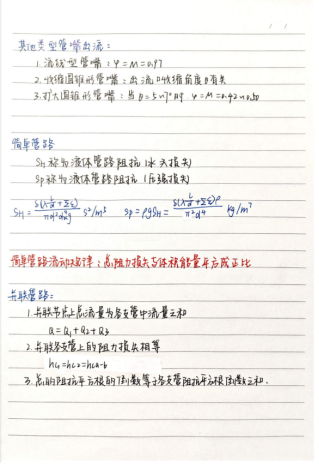 其他类型管嘴出流:
1. 流线型管嘴: φ=μ=0.97
2. 收缩圆锥形管嘴: 出流与收缩角度θ有关
3. 扩大圆锥形管嘴: 当θ=5~7°时 φ=μ=0.42~0.50
简单管路
SH 称为液体管路阻抗 (水头损失)
Sp 称为液体管路阻抗 (压强损失)
SH = 8(λ l/d + Σξ) / π²d⁴g s²/m⁵ Sp = ρgSH = 8(λ l/d + Σξ)ρ / π²d⁴ kg/m⁷
简单管路流动规律: 总阻力损失与体积流量平方成正比
并联管路:
1. 并联节点上总流量为各支管中流量之和
Q = Q₁+Q₂+Q₃
2. 并联各支管上的阻力损失相等
3. 总的阻抗平方根的倒数等于各支管阻抗平方根倒数之和.